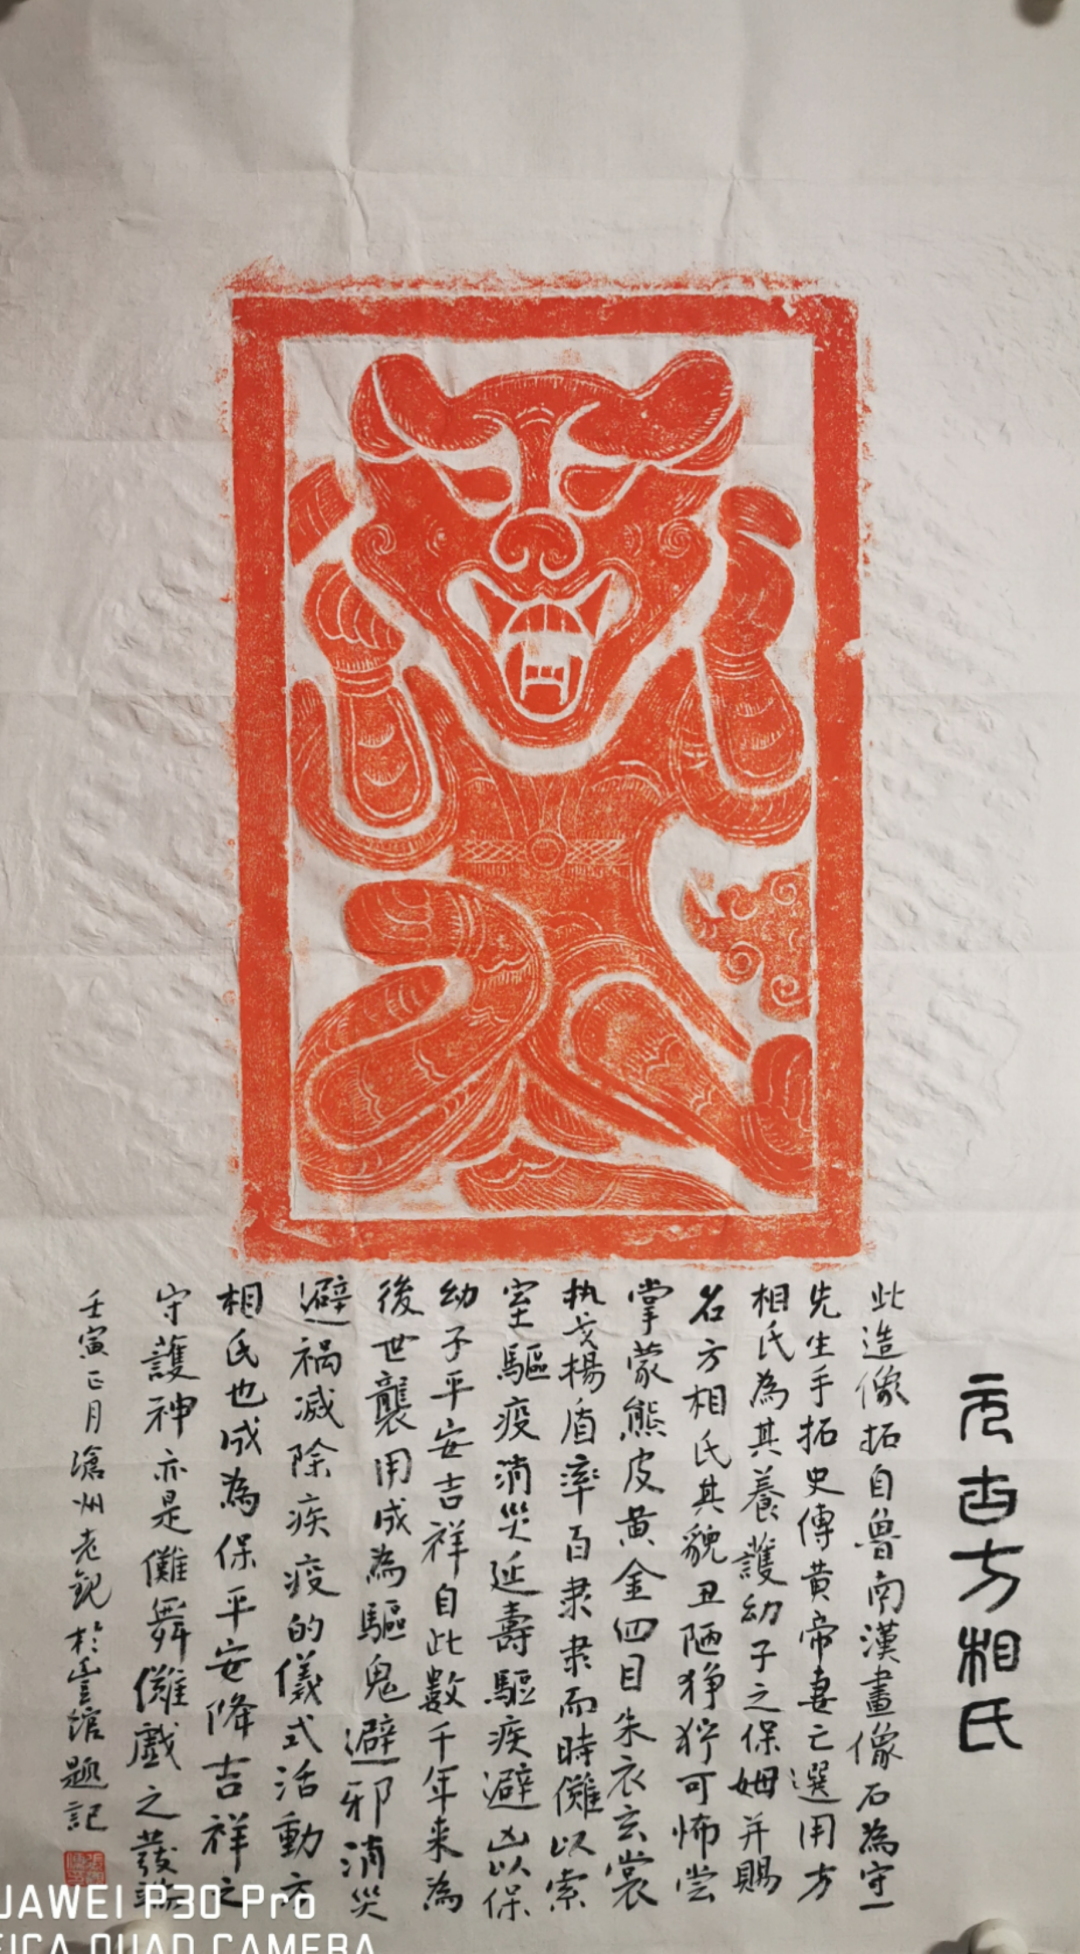 元古方相氏
此造像拓自魯南漢畫像石為守一
先生手拓史傳黄帝妻亡選用方
相氏為其養護幼子之保姆并賜
名方相氏其貌丑陋狰狞可怖尝
掌蒙熊皮黄金四目朱衣玄裳
执戈楊盾率百隶隶而時儺以索
室驅疫消災延壽驅疾避凶以保
幼子平安吉祥自此數千年来為
後世襲用成為驅鬼避邪消災
避祸减除疾疫的儀式活動方
相氏也成為保平安降吉祥之
守護神亦是儺舞儺戲之發端
壬寅正月滄州老
於
題記
HUAWEI P30 Pro
LEICA QUAD CAMERA